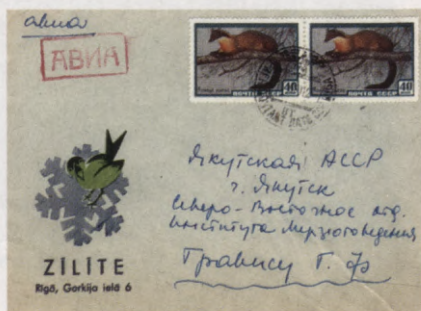 авиа
АВИА
40
ПОЧТА СССР
40
ПОЧТА СССР
Якутская АССР
г. Якутск
Северо-Восточное отд.
института Мерзлотоведения
Гравису Г. Ф
ZĪLĪTE
Rīgā, Gorkija ielā 6